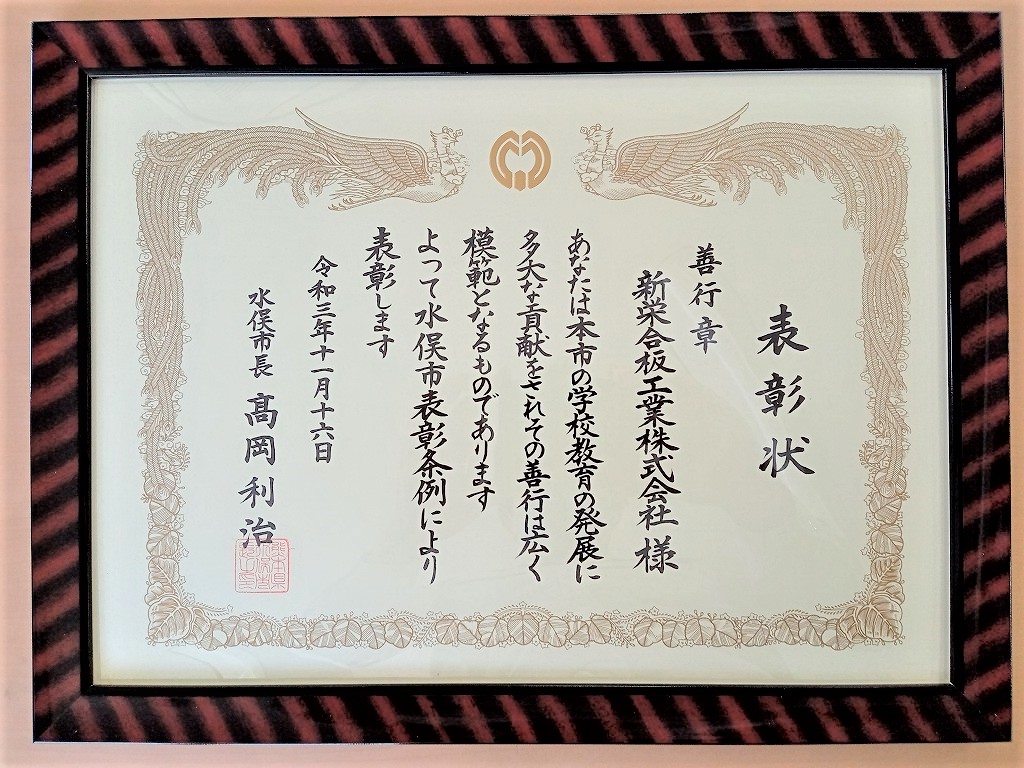 表彰状
善行章
新栄合板工業株式会社様
あなたは本市の学校教育の発展に
多大な貢献をされその善行は広く
模範となるものであります
よって水俣市表彰条例により
表彰します
令和三年十一月十六日
水俣市長 髙岡利治